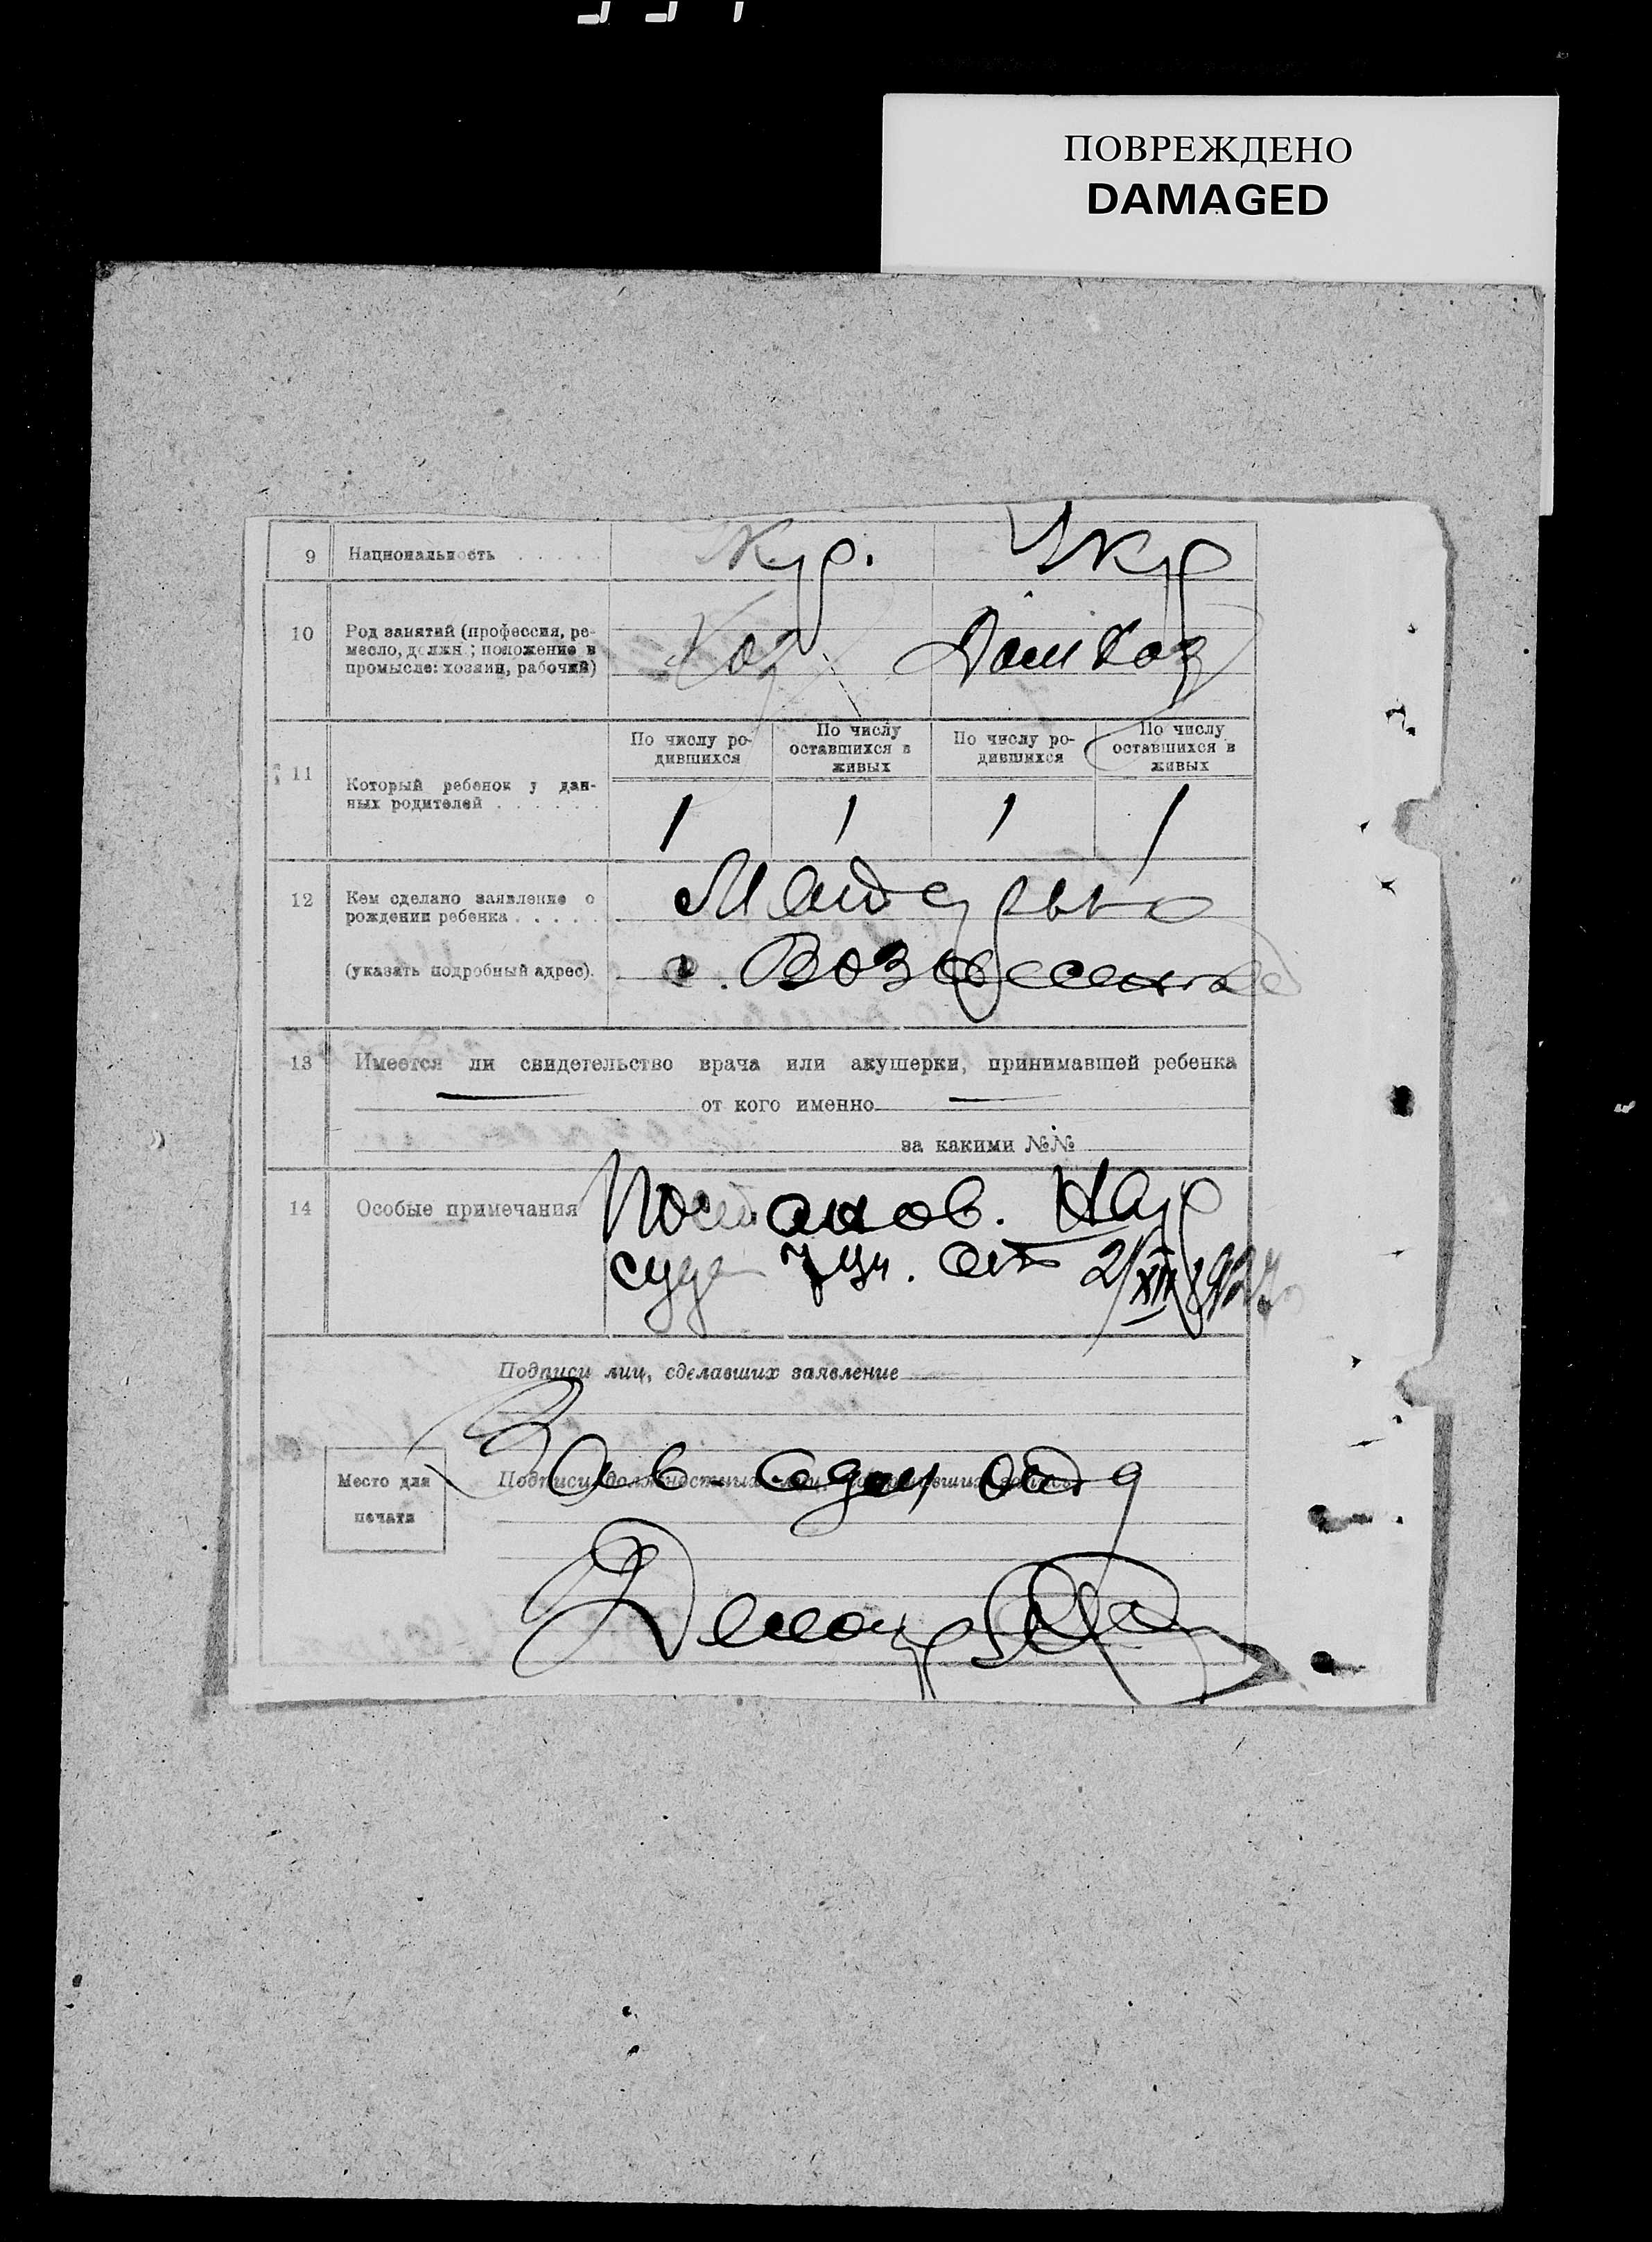 ПОВРЕЖДЕНО
DAMAGED
9 Национальность . . . . . Укр. Укр
10 Род занятий (профессия, ре-
месло, должн; положение в
промысле: хозяин, рабочий)
Хоз Дом Хоз
11 Который ребенок у дан-
ных родителей . . . . . .
По числу ро-
дившихся
По числу
оставшихся в
живых
По числу ро-
дившихся
По числу
оставшихся в
живых
1 1 1 1
12 Кем сделано заявление о
рождении ребенка . . . . .
(указать подробный адрес).
г. Вознесенка
13 Имеется ли свидетельство врача или акушерки, принимавшей ребенка
— от кого именно —
за какими №№
14 Особые примечания Постанов. Нар
суда 7 уч. от 2/XII 192
Подписи лиц, сделавших заявление
Место для
печати
Подписи должностных лиц,
Зав.